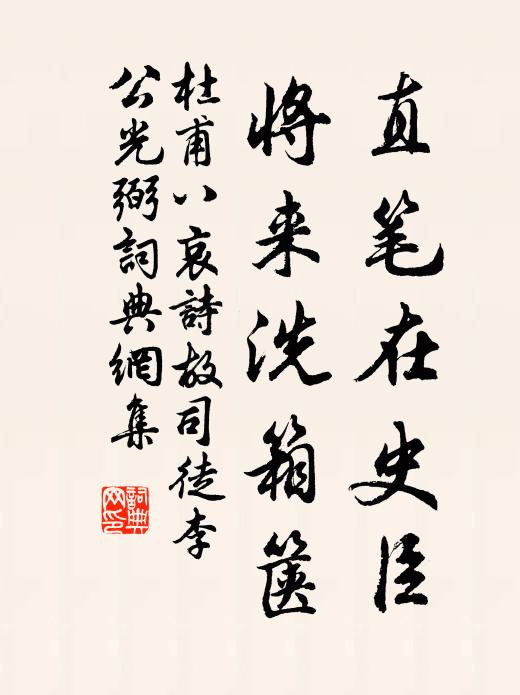 直笔在史臣
将来洗箱箧
杜甫八哀詩故司徒李
公光弼詞典網集
詞典网印